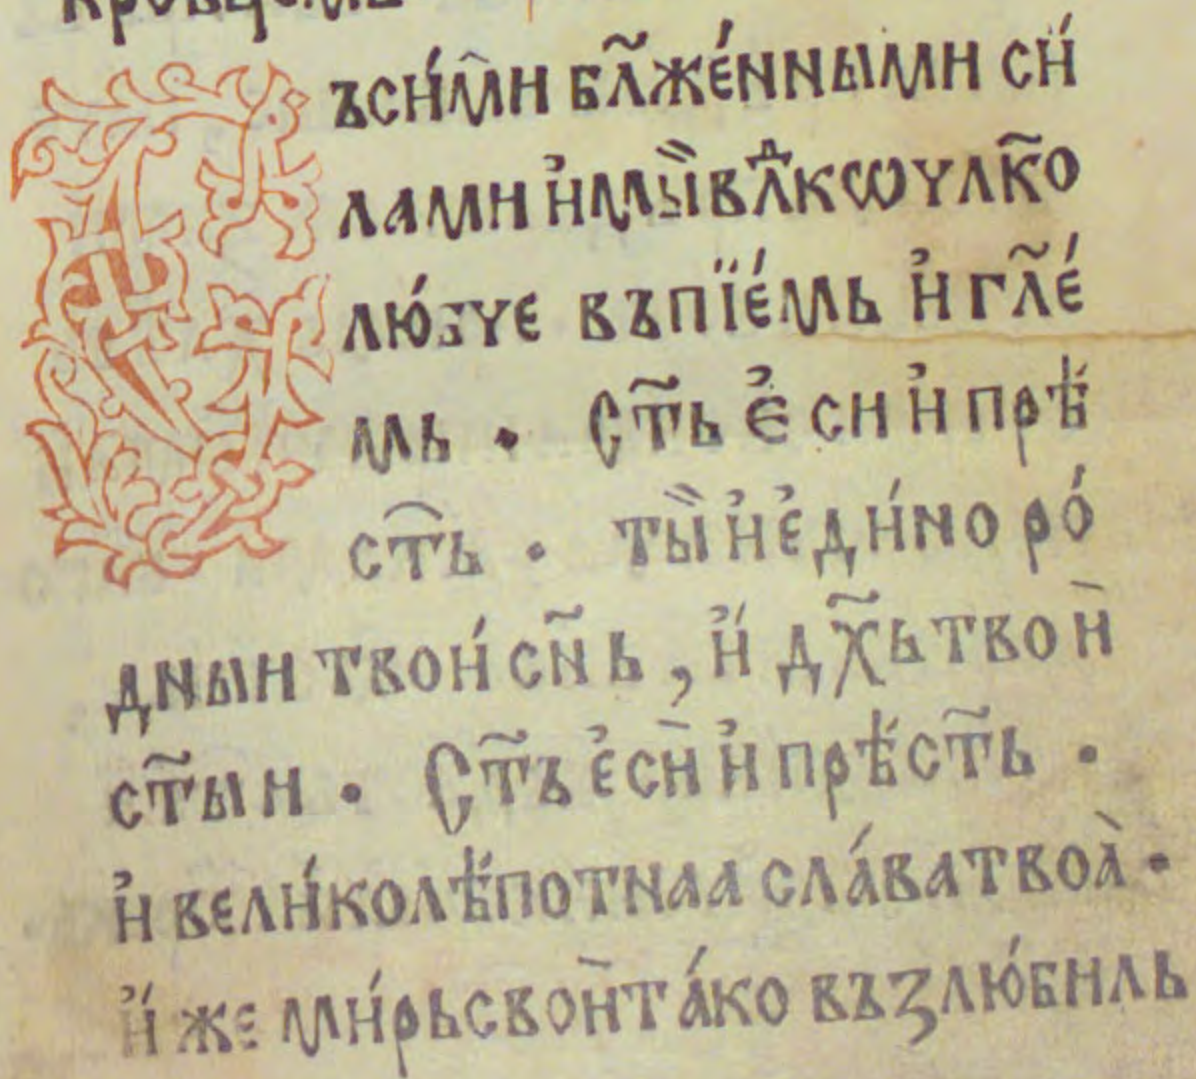 Съси́ми бл҃же́нныими си́
лами и҆ мы̏ влⷣко ѡ ч҃лко
лю́бче въпїе́мь и҆ гл҃е́
мь · Ст҃ь є҆си и҆ прѣ
ст҃ь · ты̏ и҆ є҆ди́но ро́
дныи твои́ сн҃ь , и҆́ дх҃ь твои̏
ст҃ыи · Ст҃ъ є҆сѝ и҆ прѣст҃ь ·
и҆ вели́колѣпотнаа сла́ва твоа̀ ·
и҆́же ми́рь свои̏ та́ко възлю́биль